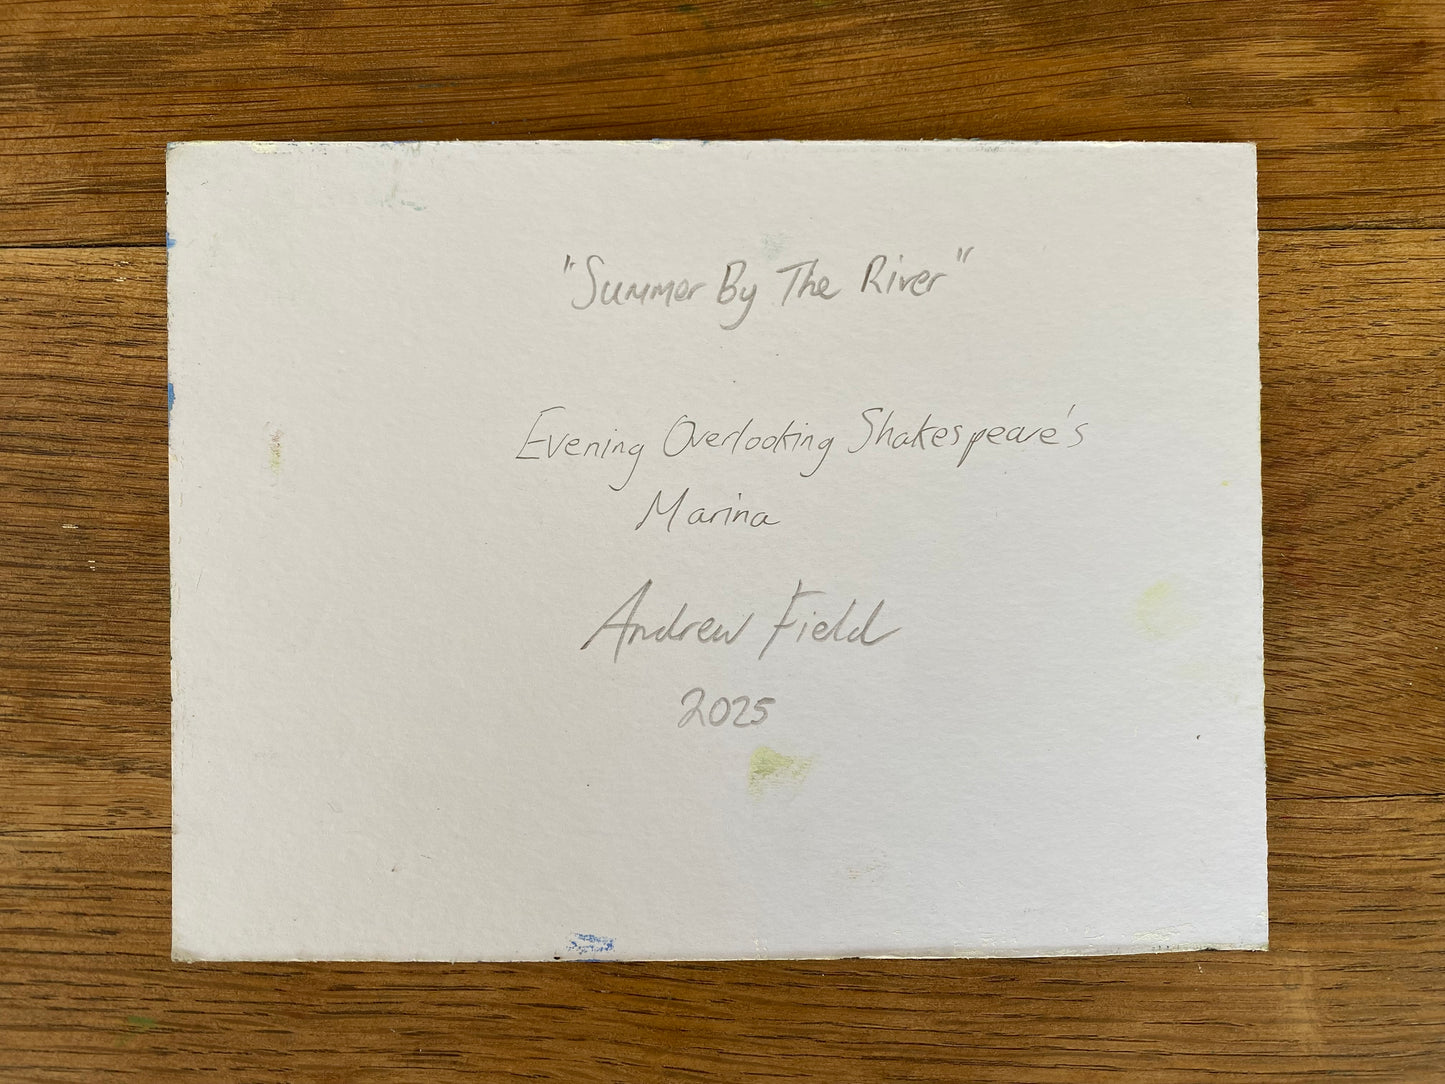 "Summer By The River"
Evening Overlooking Shakespeare's
Marina
Andrew Field
2025